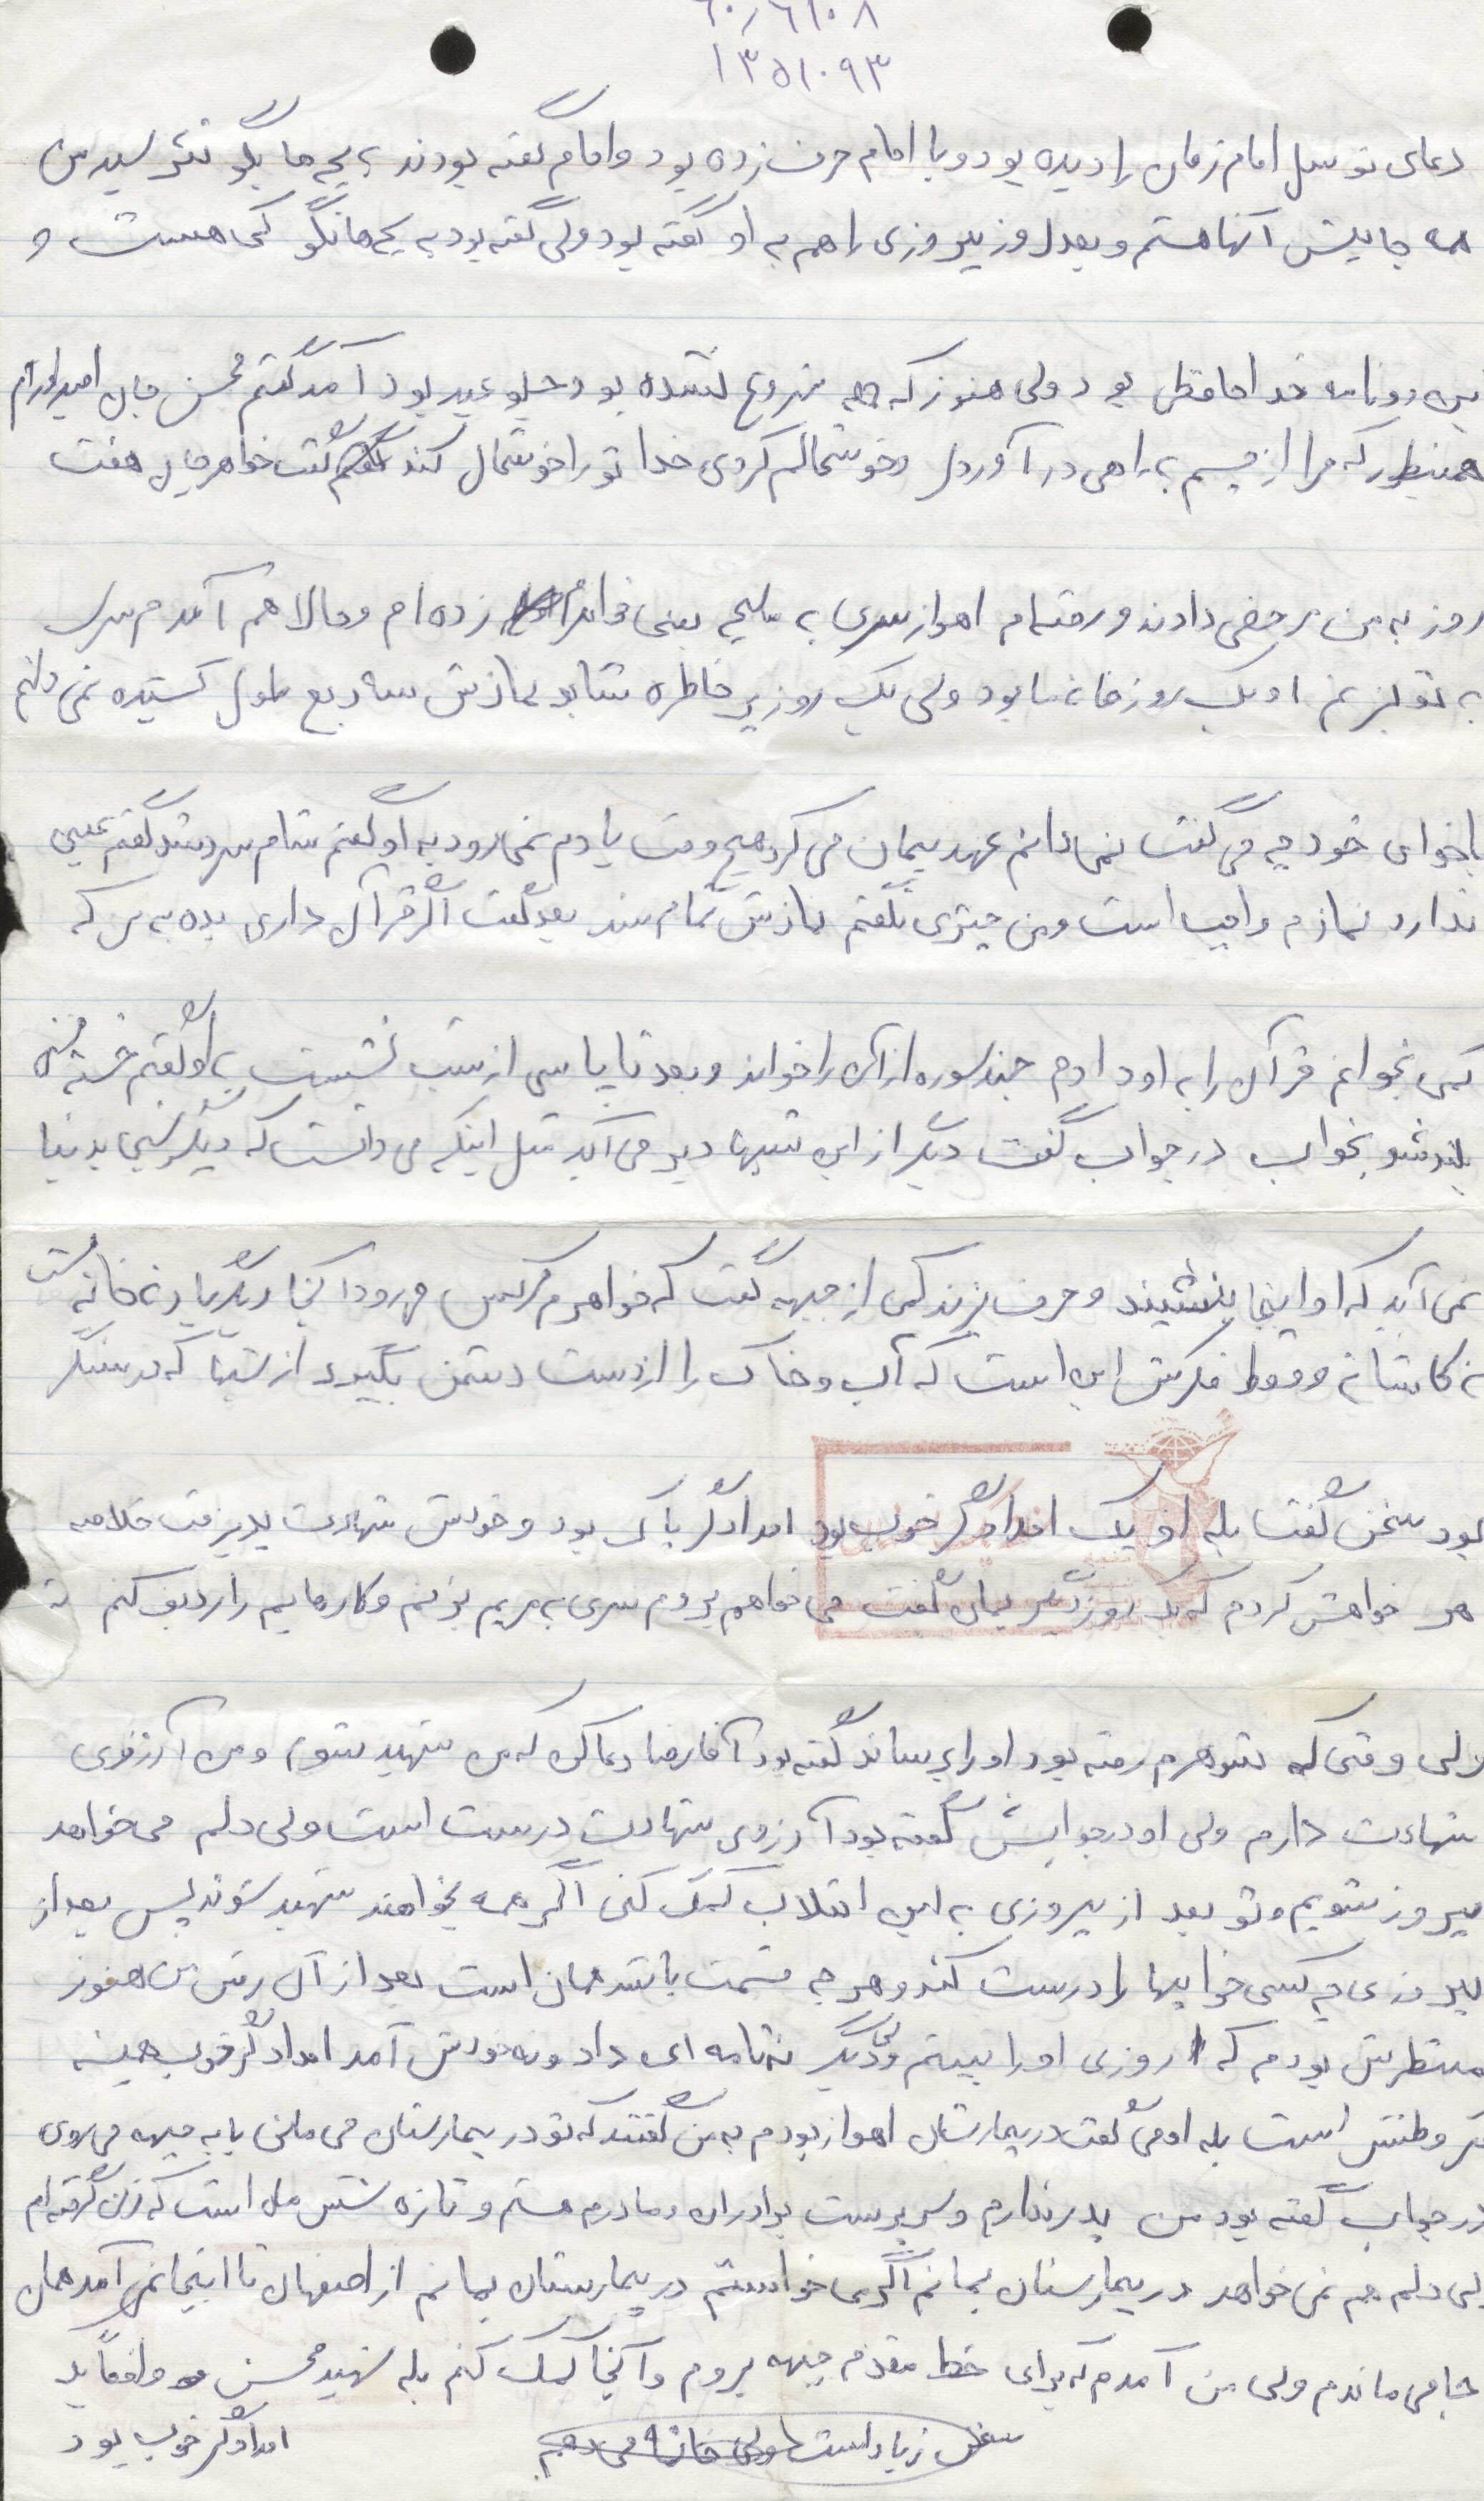 ۶۰/۶۱۰۸
۱۳۵۱۰۹۳
دعای توسل امام زمان را دیده بود و با امام حرف زده بود و امام گفته بودند به بچه ها بگو نترسید من
همه جا پیش آنها هستم و بعد روز پیروزی را هم به او گفته بود ولی گفته بود به بچه ها نگو کی هست و
خداحافظی بود ولی هنوز که حمله شروع نشده بود جلو عید بود آمد گفتم محسن جان امیدوارم
همینطور که مرا از چشم به راهی در آوردی و خوشحالم کردی خدا تو را خوشحال کند گفت خواهر جان هفت
روز به من مرخصی دادند و رفته ام اهواز سری به ملیحه یعنی خواهرم زده ام و حالا هم آمدم سری
به تو بزنم او یک روز خانه ما بود ولی یک روز پر خاطره شاید نمازش سه ربع طول کشیده نمی دانم
با خدای خود چه می گفت نمی دانم عهد پیمان می کرد هیچ وقت یادم نمی رود به او گفتم شام سرد شد گفتم عیبی
ندارد نمازم واجب است و من چیزی نگفتم نمازش تمام شد بعد گفت اگر قرآن داری بده به من که
کمی بخوانم قرآن را به او دادم چند سوره از آن را خواند و بعد تا پاسی از شب نشست به او گفتم خسته
بلند شو بخواب در جواب گفت دیگر از این شبها دیر می آید مثل اینکه می دانست که دیگر شبی بدنیا
نمی آید که او اینجا بنشیند و حرف بزند کمی از جبهه گفت که خواهرم هر کس می رود آنجا دیگر یاد نه خانه است
نه کاشانه و فقط فکرش این است که آب و خاک را از دست دشمن بگیرد از شبها که در سنگر
بود سخن گفت بله او یک امدادگر خوب بود امدادگر پاک بود و خودش شهادت پذیرفت خلاصه
هر خواهش کردم که یک روز دیگر بمان گفت می خواهم بروم سری به مریم بزنم و کارهایم را ردیف کنم
ولی وقتی که شوهرم رفته بود او را برساند گفته بود آقا رضا دعا کن که من شهید شوم و من آرزوی
شهادت دارم ولی او در جوابش گفته بود آرزوی شهادت درست است ولی دلم می خواهد
پیروز شویم و تو بعد از پیروزی به این انقلاب کمک کنی اگر همه بخواهند شهید شوند پس بعد از
پیروزی چه کسی خرابیها را درست کند و هر چه قسمت باشد همان است بعد از آن رفتن من هنوز
منتظرش بودم که روزی او را ببینم ولی دیگر نه نامه ای داد و نه خودش آمد امدادگر خوب همیشه
فکر وطنش است بله او می گفت در بیمارستان اهواز بودم به من گفتند که تو در بیمارستان می مانی یا به جبهه می روی
در جواب گفته بود من پدر ندارم و سرپرست برادران و مادرم هستم و تازه شش ماه است که زن گرفته ام
ولی دلم هم نمی خواهد در بیمارستان بمانم اگر می خواستم در بیمارستان بمانم از اصفهان تا اینجا نمی آمدم همان
جا می ماندم ولی من آمدم که برای خط مقدم جبهه بروم و آنجا کمک کنم بله شهید محسن واقعاً یک
امدادگر خوب بود
سخن زیاد است ولی خاتمه می دهم